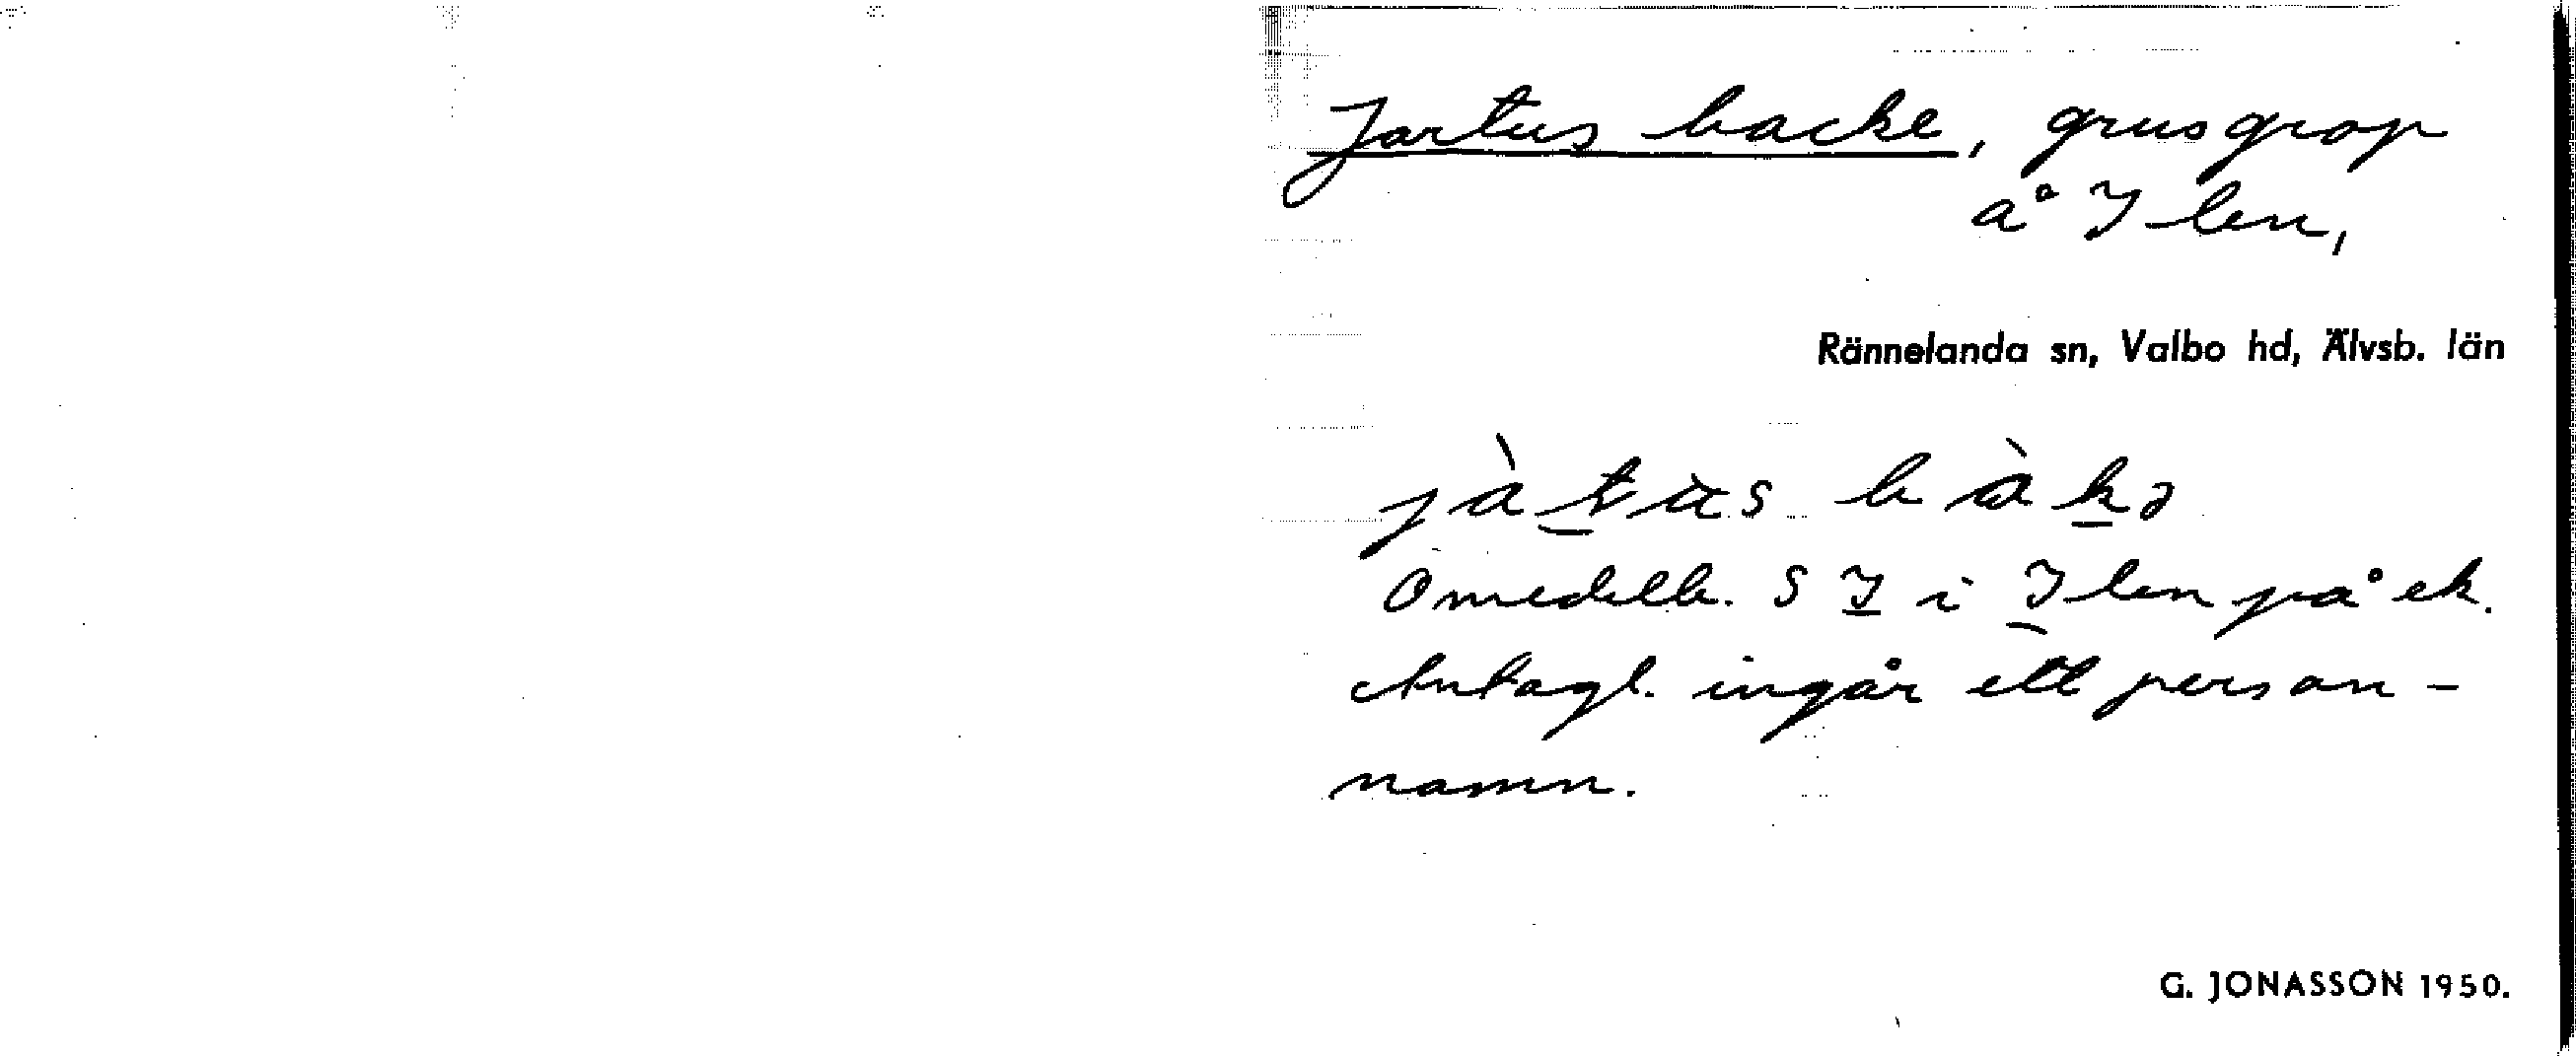 Jartus backe, grusgrop
å Ilen,
Rännelanda sn, Valbo hd, Älvsb. län
jàtus bàkə
Omedelb. S I i Ilen på ek.
Antagl. ingår ett person-
namn.
G. JONASSON 1950.